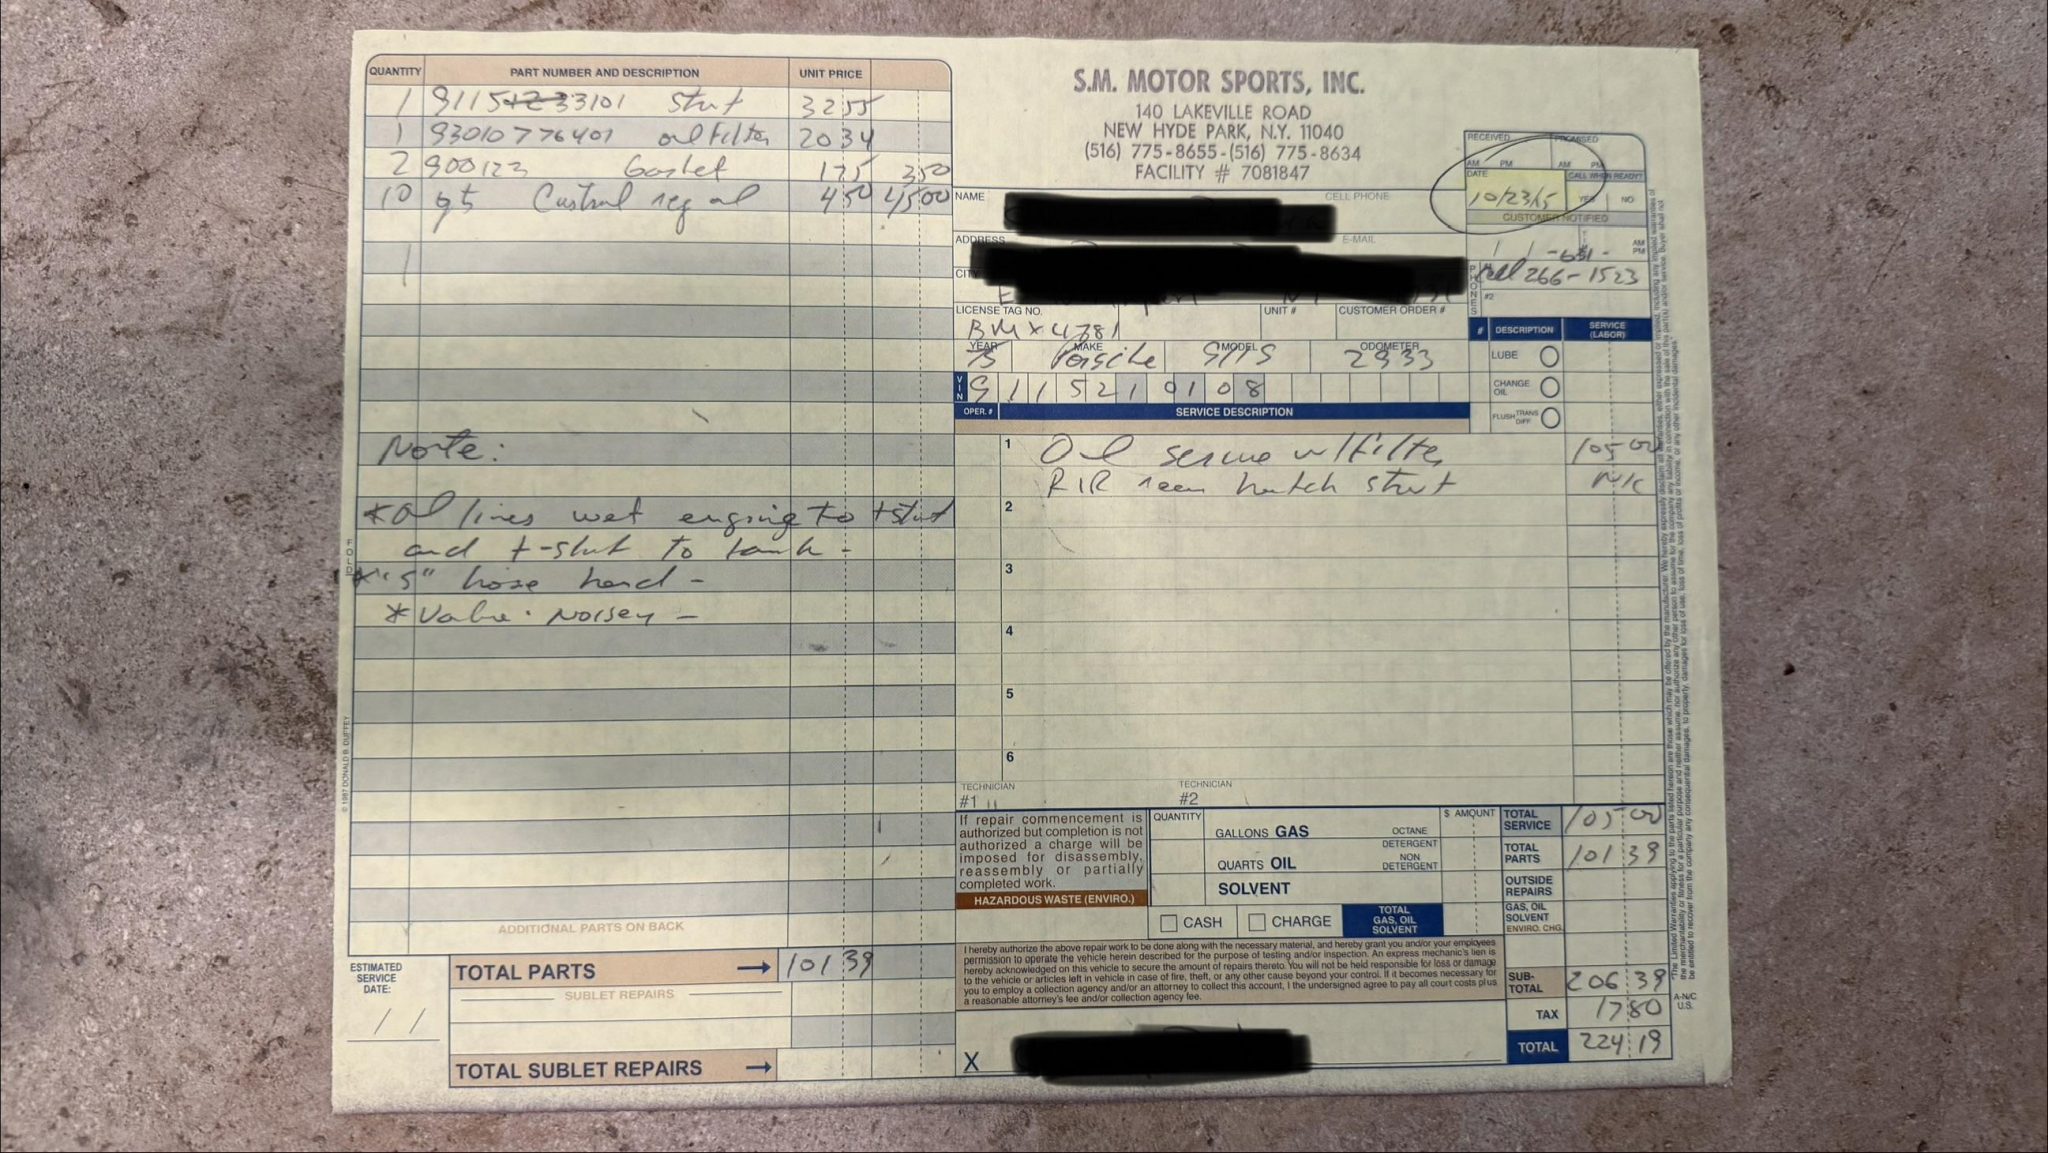 QUANTITY PART NUMBER AND DESCRIPTION UNIT PRICE
1 9115 33101 Strut 32 55
1 93010776401 oil Filter 20 34
2 900123 Gasket 1 75 3 50
10 qts Castrol reg oil 4 50 45 00
Note:
*Oil lines wet engine to t-stat
and t-stat to tank -
*"S" hose hard -
*Valve: Noisey -
FOLD
© 1987 DONALD B. DUFFEY
ADDITIONAL PARTS ON BACK
ESTIMATED SERVICE DATE:
/ /
TOTAL PARTS → 101 39
SUBLET REPAIRS
TOTAL SUBLET REPAIRS →
S.M. MOTOR SPORTS, INC.
140 LAKEVILLE ROAD
NEW HYDE PARK, N.Y. 11040
(516) 775-8655-(516) 775-8634
FACILITY # 7081847
RECEIVED PROMISED
AM PM AM PM
DATE CALL WHEN READY?
10/23/15 YES NO
CUSTOMER NOTIFIED
/ / AM PM
NAME CELL PHONE
ADDRESS E-MAIL
CITY
PHONES
-631-
266-1523
#2
LICENSE TAG NO. UNIT # CUSTOMER ORDER #
BMX4781
YEAR MAKE MODEL ODOMETER
75 Porsche 911S 2933
VIN 9115210108
# DESCRIPTION SERVICE (LABOR)
LUBE
CHANGE OIL
FLUSH TRANS DIFF
OPER. # SERVICE DESCRIPTION
1 Oil service w/Filter 105 00
R/R rear hatch strut N/C
2
3
4
5
6
TECHNICIAN #1
TECHNICIAN #2
If repair commencement is
authorized but completion is not
authorized a charge will be
imposed for disassembly,
reassembly or partially
completed work.
HAZARDOUS WASTE (ENVIRO.)
QUANTITY $ AMOUNT
GALLONS GAS OCTANE
QUARTS OIL DETERGENT NON DETERGENT
SOLVENT
CASH CHARGE TOTAL GAS, OIL SOLVENT
TOTAL SERVICE 105 00
TOTAL PARTS 101 39
OUTSIDE REPAIRS
GAS, OIL SOLVENT
ENVIRO. CHG.
SUB-TOTAL 206 39
TAX 17 80
TOTAL 224 19
I hereby authorize the above repair work to be done along with the necessary material, and hereby grant you and/or your employees
permission to operate the vehicle herein described for the purpose of testing and/or inspection. An express mechanic's lien is
hereby acknowledged on this vehicle to secure the amount of repairs thereto. You will not be held responsible for loss or damage
to the vehicle or articles left in vehicle in case of fire, theft, or any other cause beyond your control. If it becomes necessary for
you to employ a collection agency and/or an attorney to collect this account, I the undersigned agree to pay all court costs plus
a reasonable attorney's fee and/or collection agency fee.
X
A-N/C
U.S.